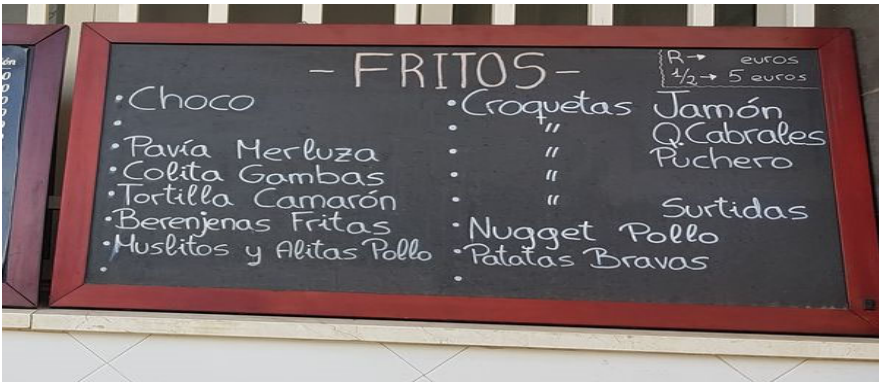 - FRITOS -
R→ euros
1/2→ 5 euros
• Choco
•
• Pavía Merluza
• Colita Gambas
• Tortilla Camarón
• Berenjenas Fritas
• Muslitos y Alitas Pollo
•
• Croquetas Jamón
• " Q.Cabrales
• " Puchero
• "
• " Surtidas
• Nugget Pollo
• Patatas Bravas
•